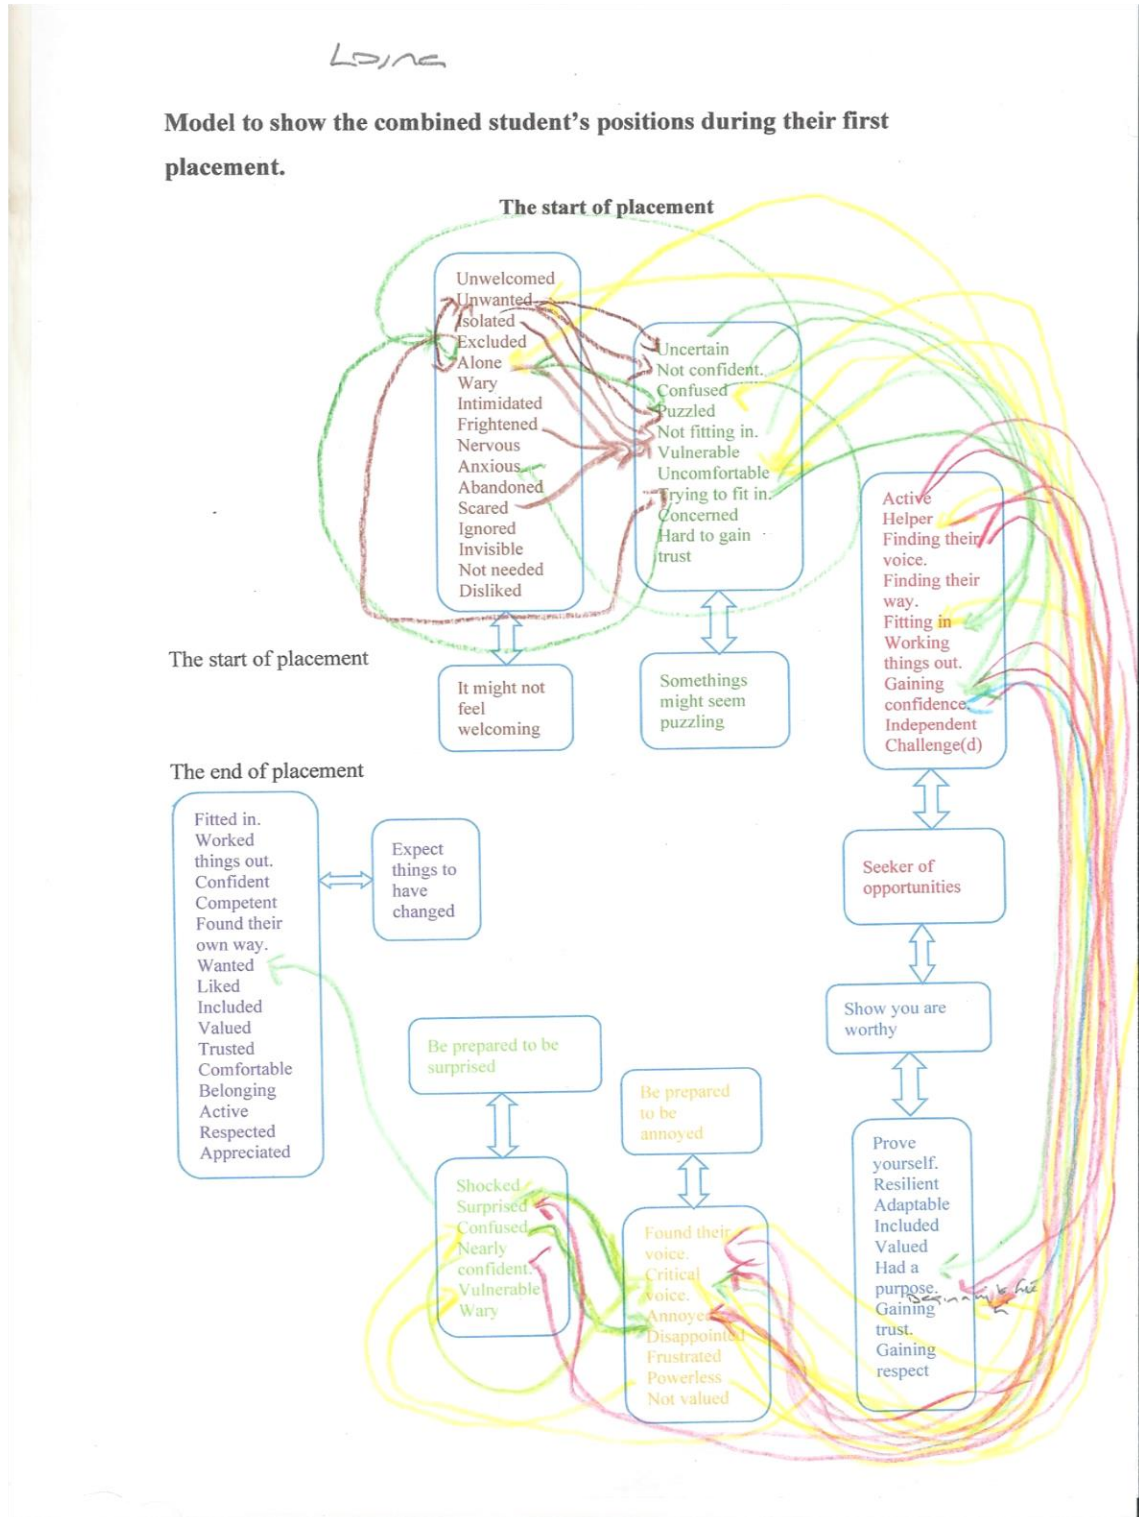 Model to show the combined student's positions during their first
placement.
The start of placement
Unwelcomed
Unwanted
Isolated
Excluded
Alone
Wary
Intimidated
Frightened
Nervous
Anxious
Abandoned
Scared
Ignored
Invisible
Not needed
Disliked
Uncertain
Not confident.
Confused
Puzzled
Not fitting in.
Vulnerable
Uncomfortable
Trying to fit in.
Concerned
Hard to gain
trust
Active
Helper
Finding their
voice.
Finding their
way.
Fitting in
Working
things out.
Gaining
confidence.
Independent
Challenge(d)
The start of placement
It might not
feel
welcoming
Somethings
might seem
puzzling
The end of placement
Fitted in.
Worked
things out.
Confident
Competent
Found their
own way.
Wanted
Liked
Included
Valued
Trusted
Comfortable
Belonging
Active
Respected
Appreciated
Expect
things to
have
changed
Seeker of
opportunities
Show you are
worthy
Be prepared to be
surprised
Be prepared
to be
annoyed
Shocked
Surprised
Confused
Nearly
confident.
Vulnerable
Wary
Found their
voice.
Critical
voice.
Annoyed
Disappointed
Frustrated
Powerless
Not valued
Prove
yourself.
Resilient
Adaptable
Included
Valued
Had a
purpose.
Gaining
trust.
Gaining
respect